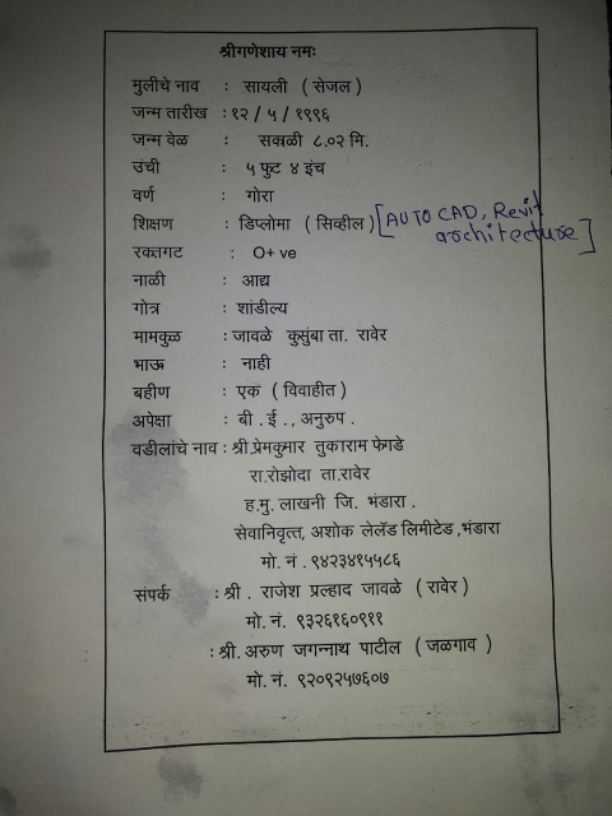 श्रीगणेशाय नमः
मुलीचे नाव : सायली ( सेजल )
जन्म तारीख : १२ / ५ / १९९६
जन्म वेळ : सकाळी ८.०२ मि.
उंची : ५ फुट ४ इंच
वर्ण : गोरा
शिक्षण : डिप्लोमा ( सिव्हील ) [AUTO CAD, Revit
architecture]
रक्तगट : O+ ve
नाळी : आद्य
गोत्र : शांडील्य
मामकुळ : जावळे कुसुंबा ता. रावेर
भाऊ : नाही
बहीण : एक ( विवाहीत )
अपेक्षा : बी . ई . , अनुरुप .
वडीलांचे नाव : श्री.प्रेमकुमार तुकाराम फेगडे
रा.रोझोदा ता.रावेर
ह.मु. लाखनी जि. भंडारा .
सेवानिवृत्त, अशोक लेलॅड लिमीटेड ,भंडारा
मो. नं . ९४२३४१५५८६
संपर्क : श्री . राजेश प्रल्हाद जावळे ( रावेर )
मो. नं. ९३२६१६०९११
: श्री. अरुण जगन्नाथ पाटील ( जळगाव )
मो. नं. ९२०९२५७६०७